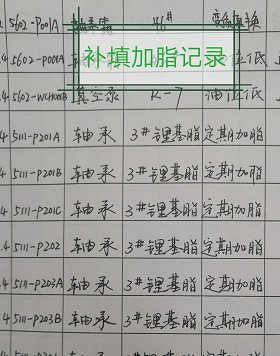 5602-P001A 46#
补填加脂记录
.4 5602-P001A 位低
.4 5602- 真空泵 K-7 油位低
.4 5111-P201A 轴承 3#锂基脂 定期加脂
.4 5111-P201B 轴承 3#锂基脂 定期加脂
.4 5111-P201C 轴承 3#锂基脂 定期加脂
.4 5111-P202 轴承 3#锂基脂 定期加脂
.4 5111-P203A 轴承 3#锂基脂 定期加脂
.4 5111-P203B 轴承 3#锂基脂 定期加脂